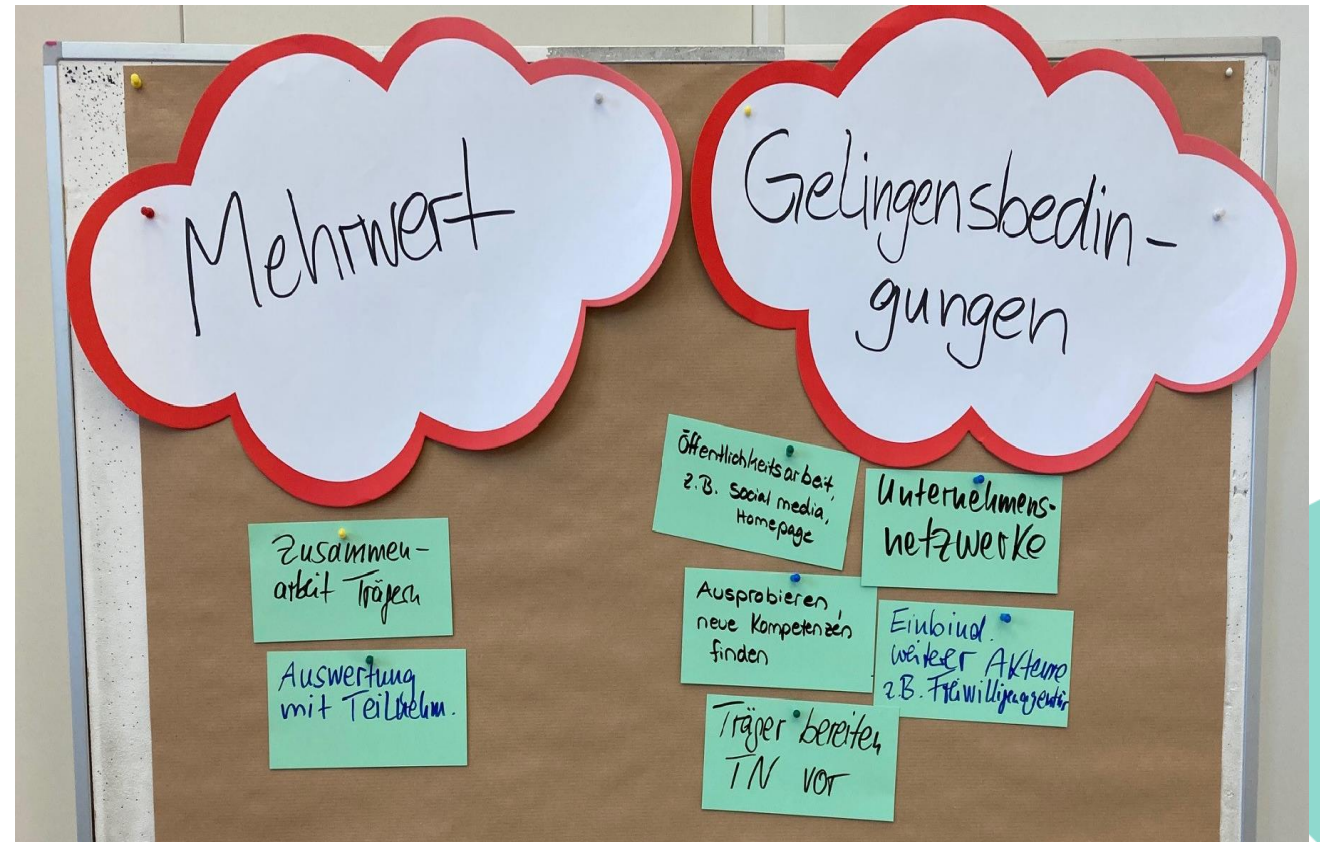 Mehrwert
Zusammen-
arbeit Trägern
Auswertung
mit Teilnehm.
Gelingensbedin-
gungen
Öffentlichkeitsarbeit,
z.B. Social media,
Homepage
Unternehmens-
netzwerke
Ausprobieren,
neue Kompetenzen
finden
Einbind.
weiterer Akteure
z.B. Freiwilligenagentur
Träger bereiten
TN vor